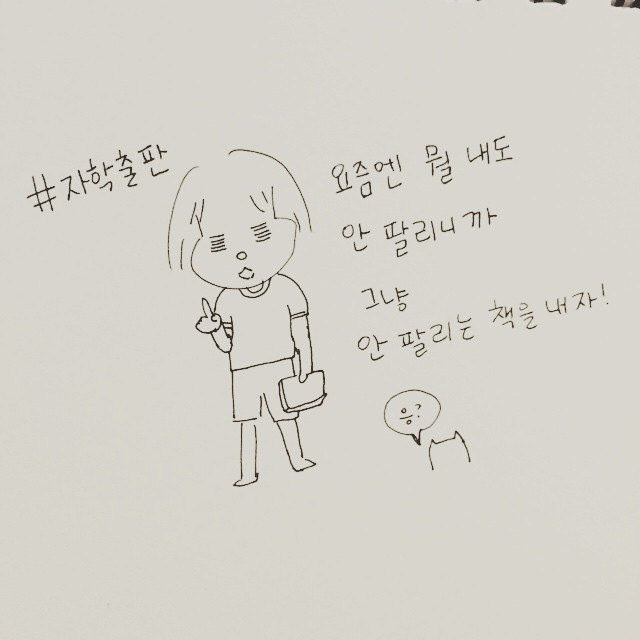 #자학출판
요즘엔 뭘 내도
안 팔리니까
그냥
안 팔리는 책을 내자!
응?